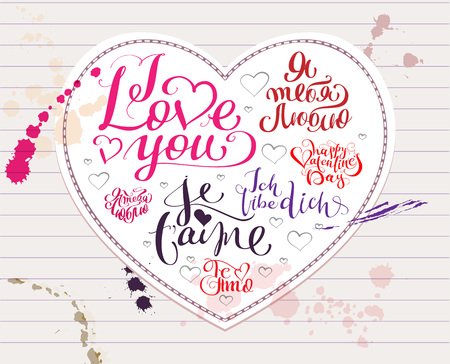 I
Love
you
Я
тебя
Люблю
Happy
Valentine's
Day
Я тебя
люблю
Je
t'aime
Ich
libe dich
Te
Amo